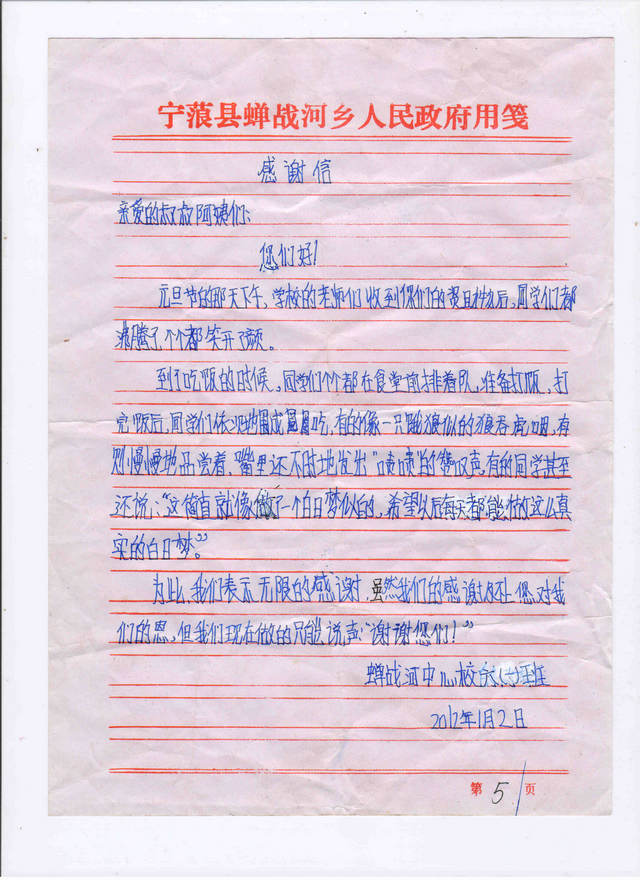 宁蒗县蝉战河乡人民政府用笺
感谢信
亲爱的叔叔阿姨们:
您们好!
元旦节的那天下午,学校的老师们收到你们的 后,同学们都
沸腾了个个都笑开了颜。
到了吃饭的时候,同学们个个都在食堂前排着队,准备打饭,打
完饭后,同学们依次地围成 吃,有的像一只 狼似的狼吞虎咽,有
则慢慢地品尝着,嘴里还不时地发出“啧啧”的赞叹声,有的同学甚至
还说:“这简直就像做了一个白日梦似的,希望以后每天都能做这么真
实的白日梦。”
为此,我们表示无限的感谢,虽然我们的感谢 不上您对我
们的恩,但我们现在做的只能说声:“谢谢您们!”
蝉战河中心校 班
2012年1月2日
第5页